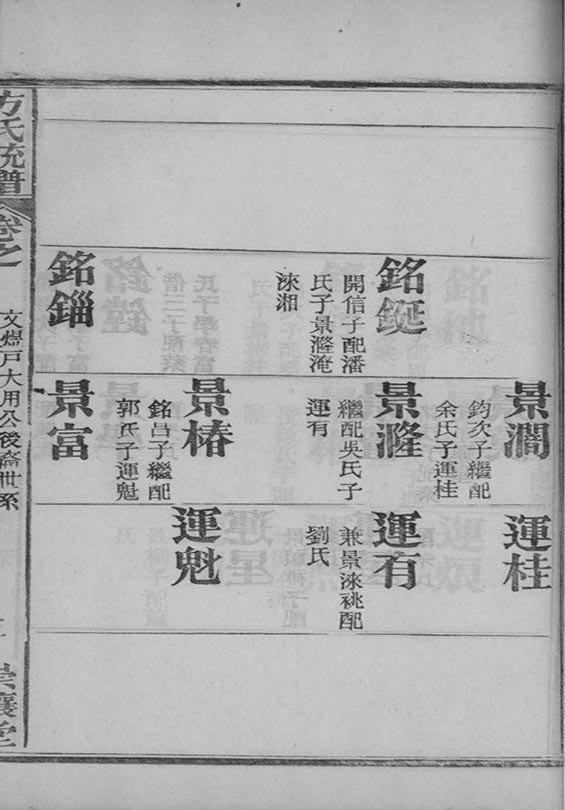 銘鋌
開信子配潘
氏子景滙淹
淶湘
銘錙
景澗
鈞次子繼配
余氏子運桂
景滙
繼配吳氏子
運有
景椿
銘呂子繼配
郭氏子運魁
景富
運桂
運有
兼景淶祧配
劉氏
運魁
方氏統譜
卷之
文煜戸大用公後裔世系
崇讓堂